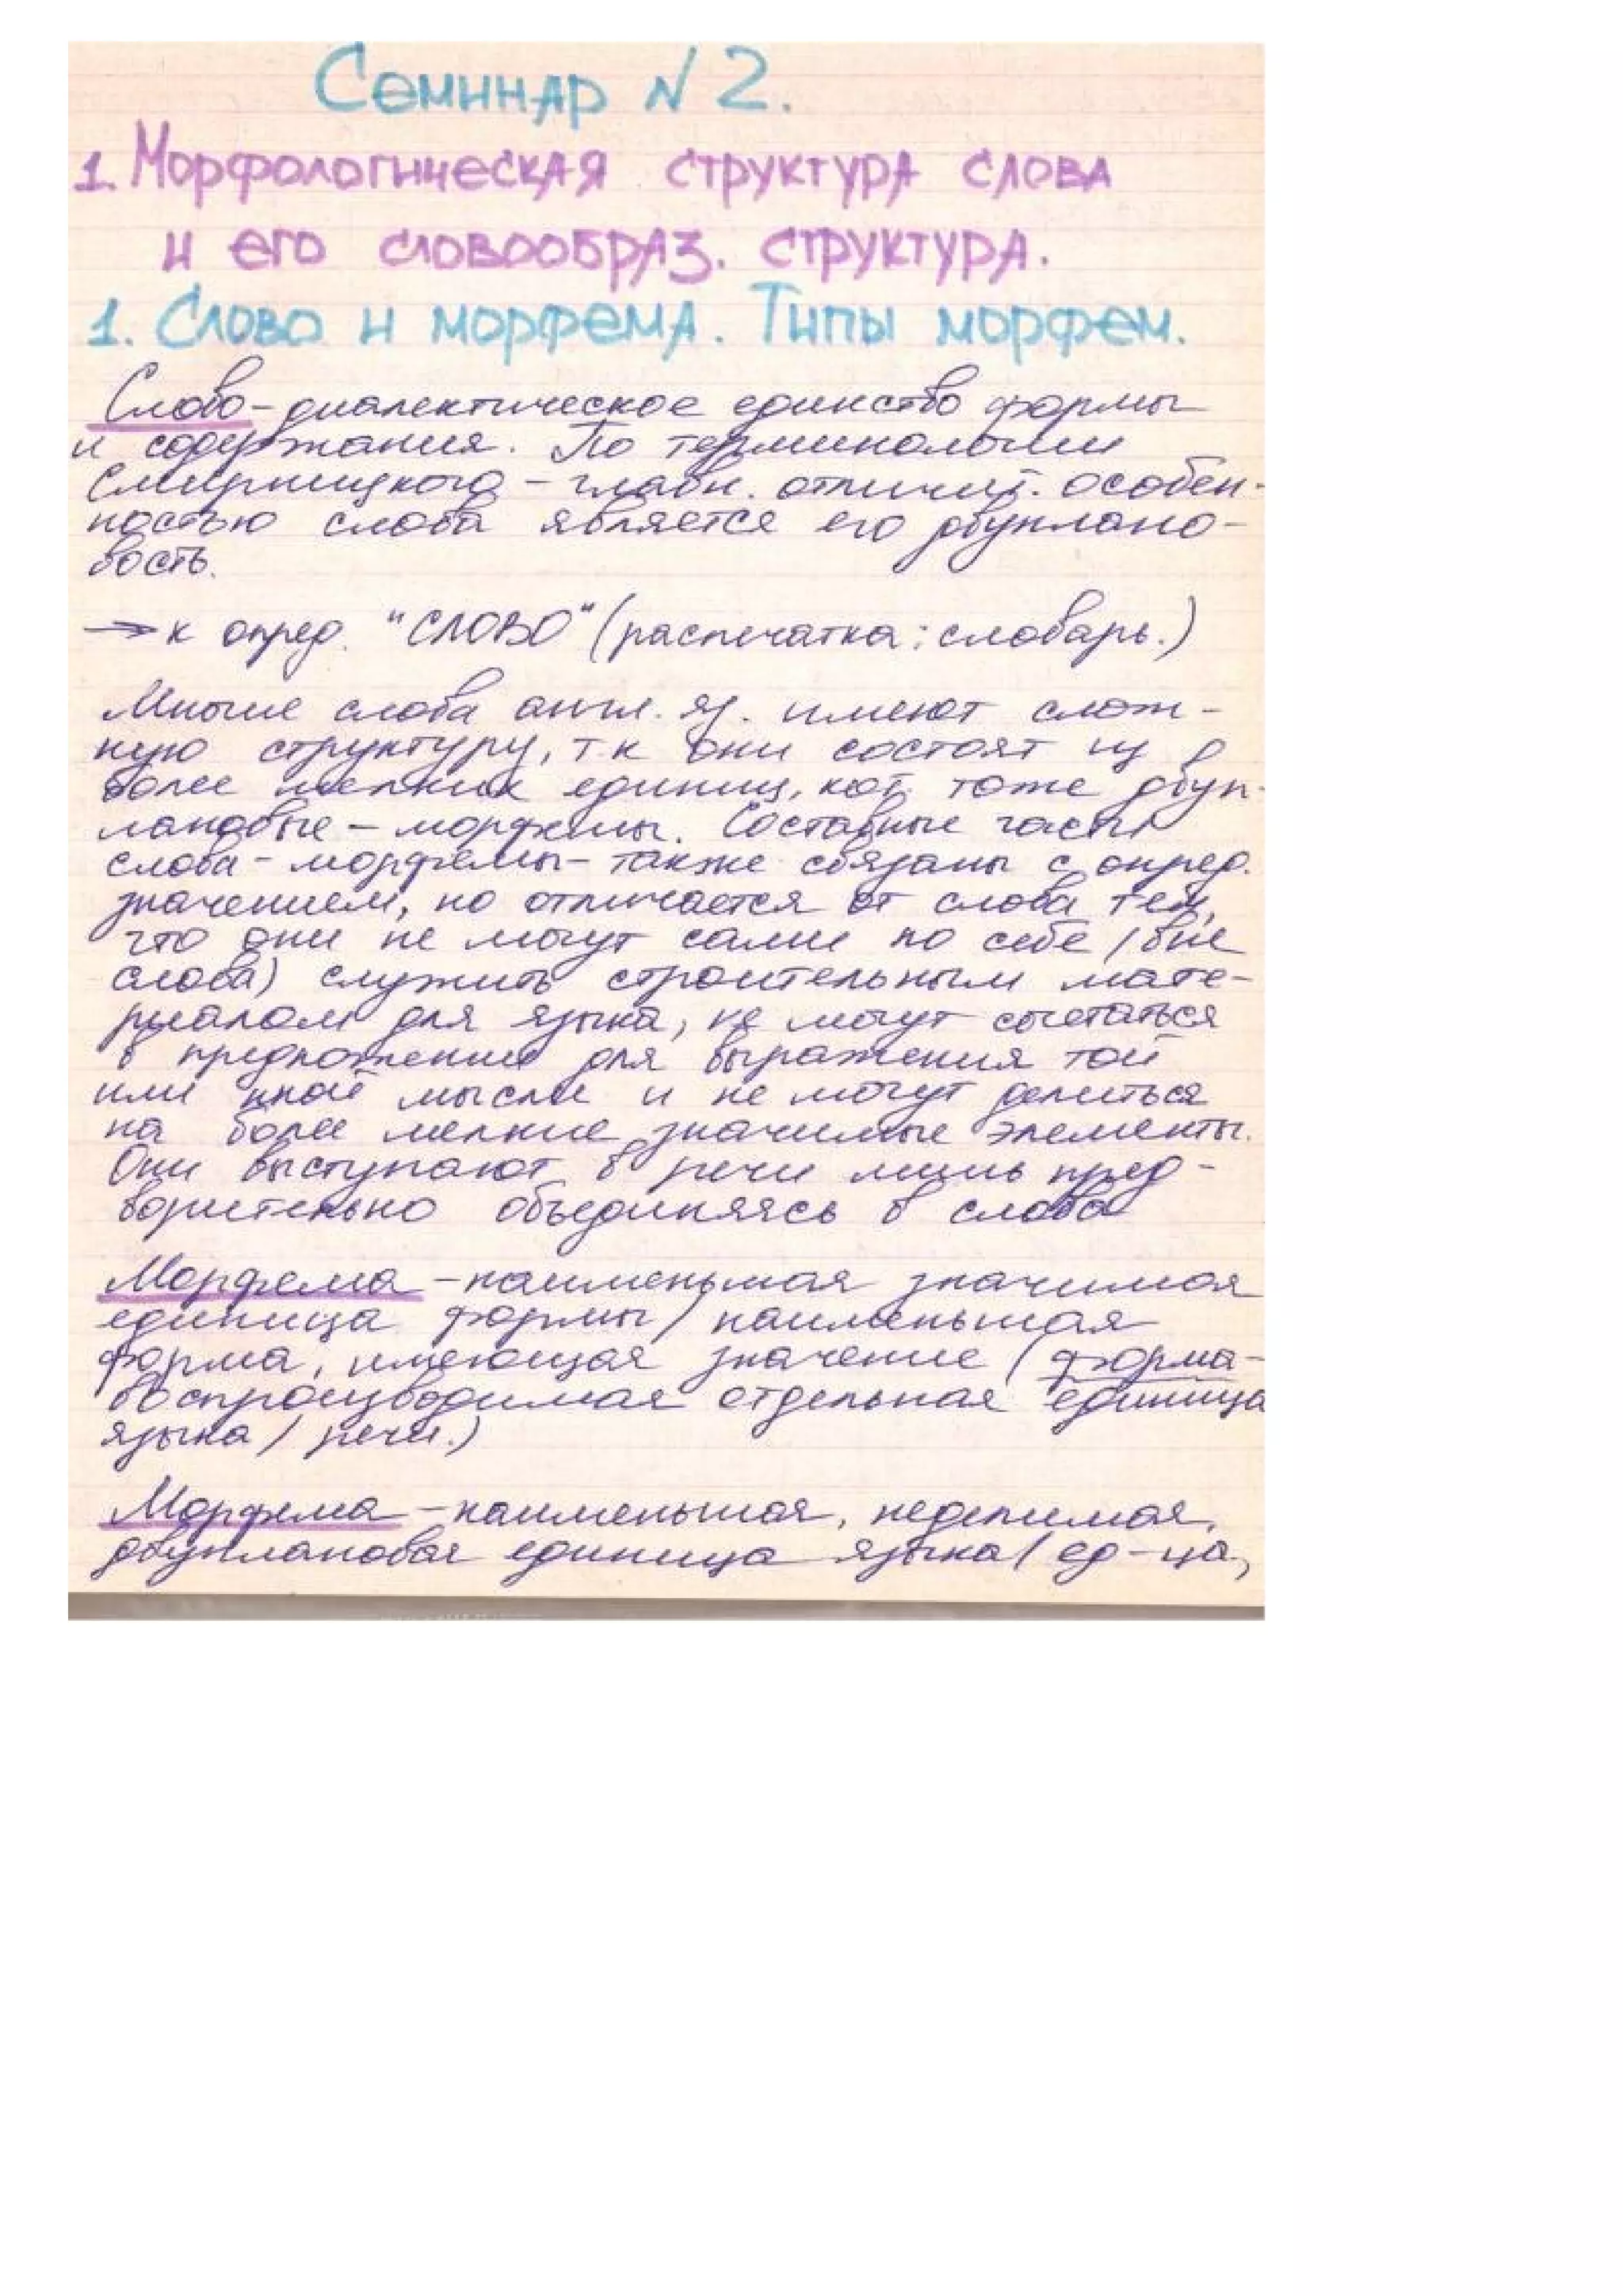 Семинар N 2.
1. Морфологическая структура слова
и его словообраз. структура.
1. Слово и морфема. Типы морфем.
Слово - диалектическое единство формы
и содержания. По терминологии
Смирницкого - главн. отличит. особен-
ностью слова является его двуплано-
вость.
→ к опред. "СЛОВО" (распечатка: словарь.)
Многие слова англ. яз. имеют слож-
ную структуру, т.к они состоят из
более мелких единиц, кот. тоже двуп-
лановые - морфемы. Составные части
слова - морфемы - также связаны с опред.
значением, но отличается от слова тем,
что они не могут сами по себе (вне
слова) служить строительным мате-
риалом для языка, не могут сочетаться
в предложение для выражения той
или иной мысли и не могут делиться
на более мелкие значимые элементы.
Они выступают в речи лишь пред-
ворительно объединяясь в слова
Морфема - наименьшая значимая
единица формы / наименьшая
форма, имеющая значение (форма-
воспроизводимая отдельная единица
языка / речи.)
Морфема - наименьшая, неделимая,
двуплановая единица языка (ед-ца,